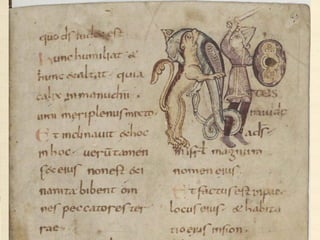 quo ds iudex est
Hunc humiliat &
hunc exaltat quia
calix in manu dni
uini meri plenus mixto
Et inclinauit ex hoc
in hoc uerutamen
fex eius non est exi
nanita bibent om
nes peccatores ter
rae
ds
in isrl magnum
nomen eius.
Et factus est in pace
locus eius & habita
tio eius in sion.